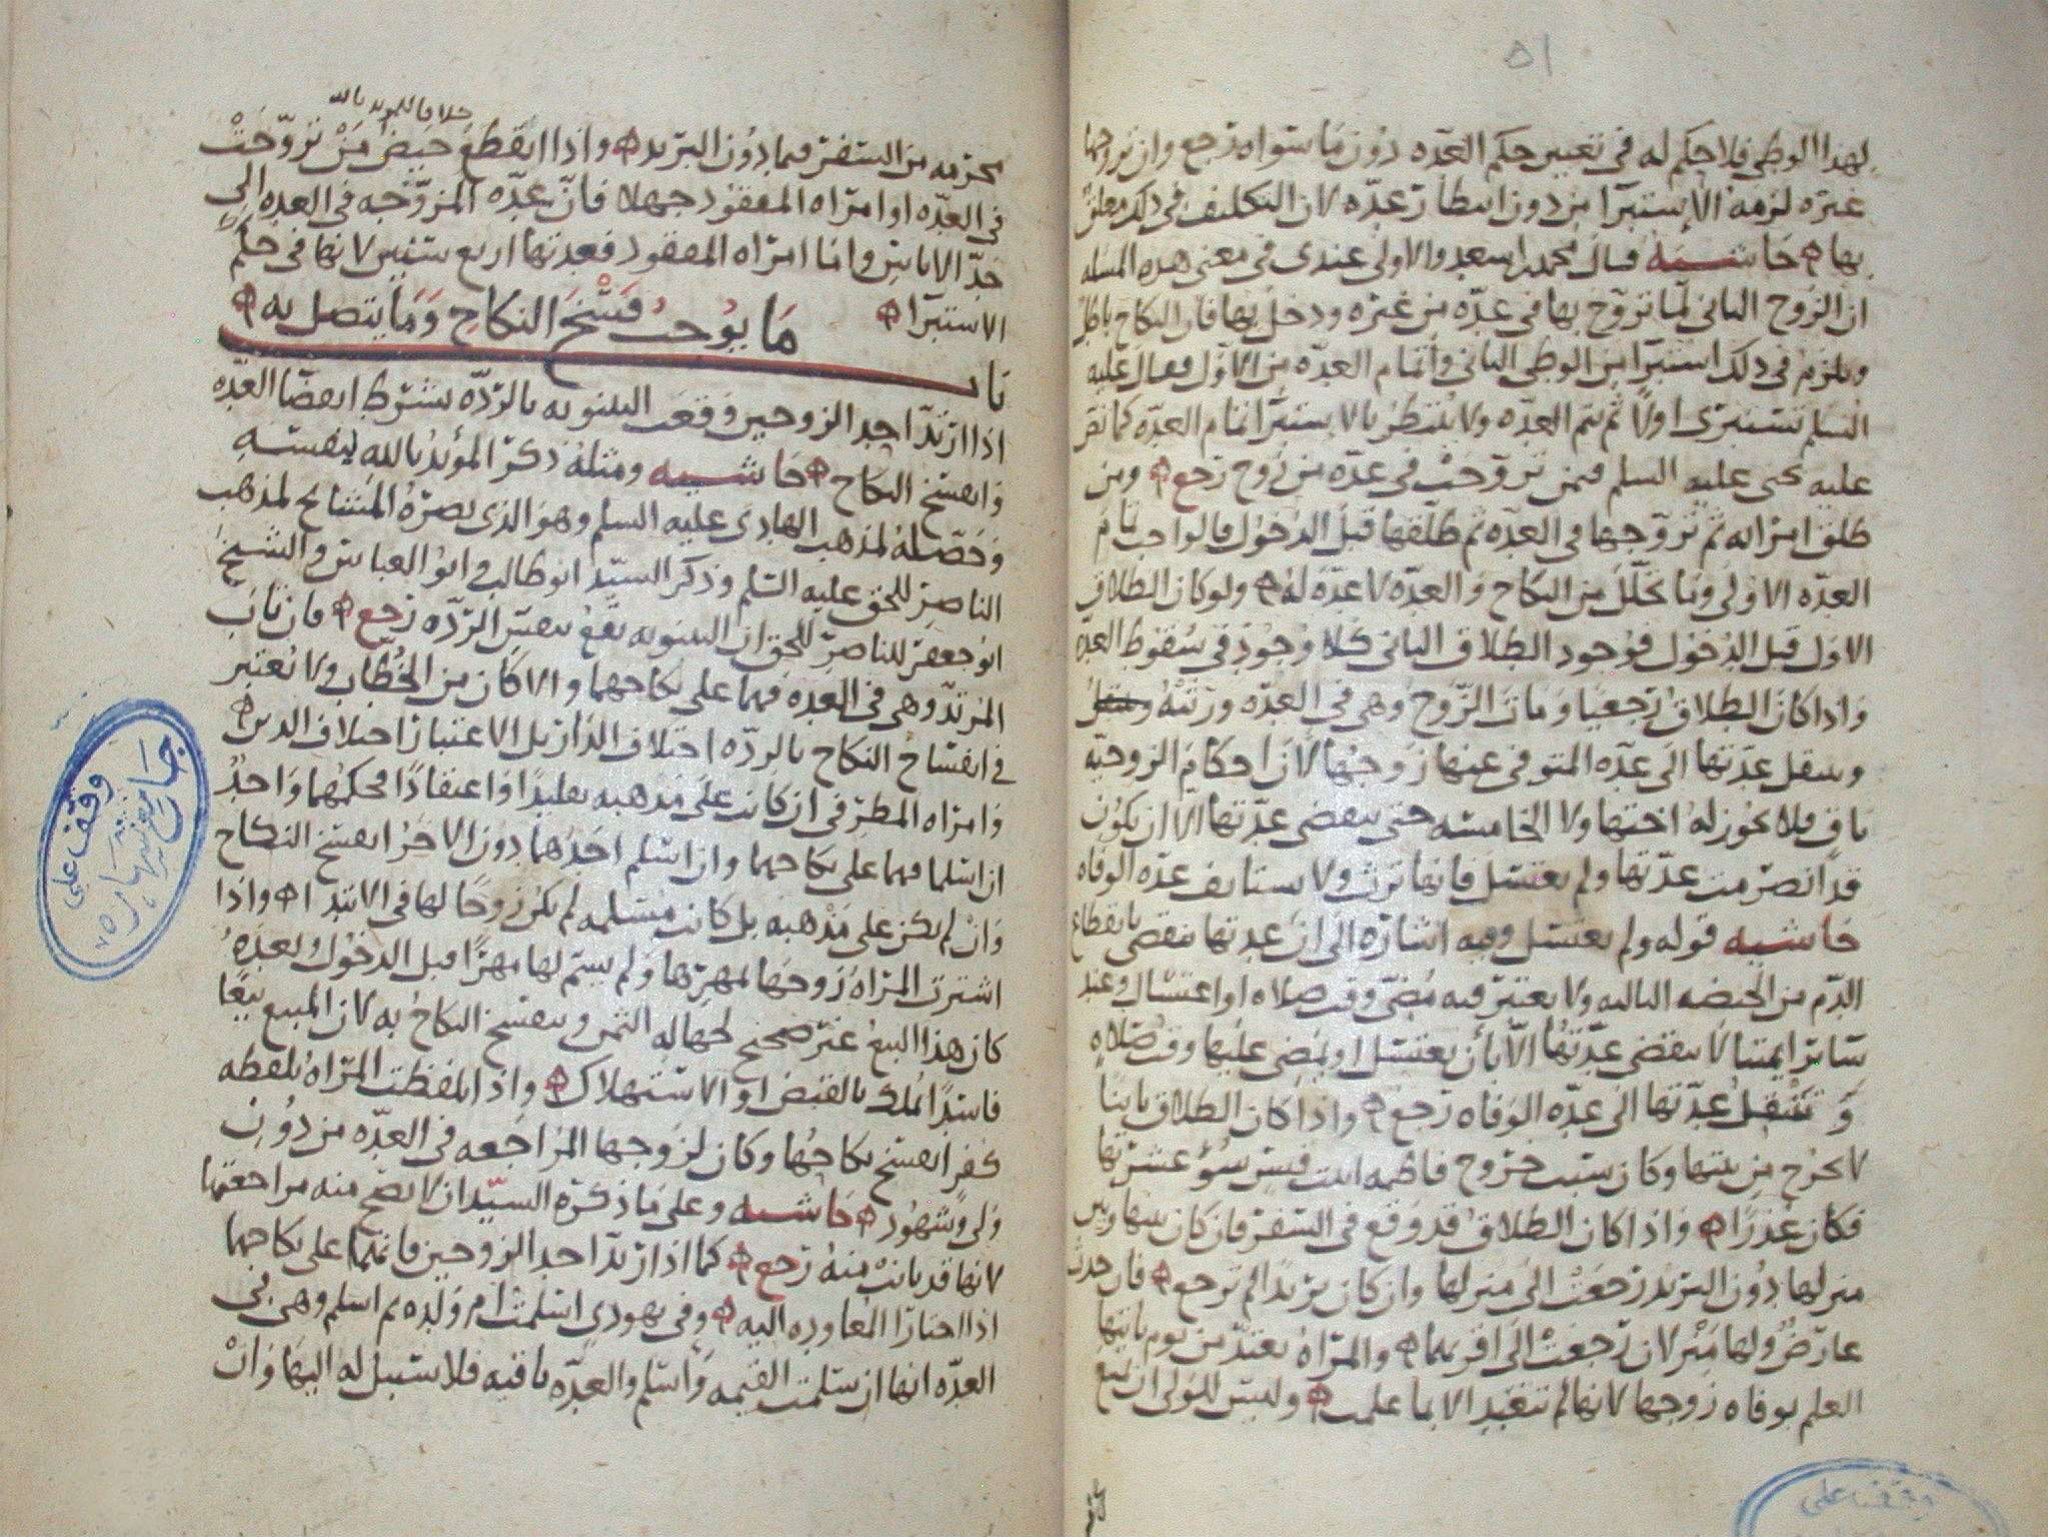 ٥١
لهذا الوطى فلا حكم له فى تعيين حكم العده دون ما سواه رجع وان تزوجها
غيره لزمه الاستبرا من دون انتظار عده لان التكليف فى ذلك معلق
بها حاشيه قال محمد اسعد والاولى عندى فى معنى هذه المسله
ان الزوج الثانى لما تزوج بها فى عده من غيره ودخل بها فان النكاح باطل
ويلزم فى ذلك استبرا من الوطى الثانى واتمام العده من الاول فقال عليه
السلم تستبرى اولا ثم تتم العده ولا ينتظر بالاستبرا تمام العده كما نص
عليه يحيى عليه السلم فيمن تزوجت فى عده من زوج رجع ومن
طلق امراته ثم تزوجها فى العده ثم طلقها قبل الدخول فالواجب تمام
العده الاولى وما تخلل من النكاح والعده لا عده له ولو كان الطلاق
الاول قبل الدخول فوجود الطلاق الثانى كلا وجود فى سقوط العده
واذا كان الطلاق رجعيا ومات الزوج وهى فى العده ورثته
وينتقل عدتها الى عده المتوفى عنها زوجها لان احكام الزوجيه
باق فلا يجوز له اختها ولا الخامسه حتى ينقضى عدتها الا ان يكون
قد انصرمت عدتها ولم يغتسل فانها ترث ولا يستانف عده الوفاه
حاشيه قوله ولم يغتسل وفيه اشاره الى ان عدتها تنقضى بانقطاع
الدم من الحيضه الثالثه ولا يعتبر فيه مضى وقت صلاه او اغتسال وعند
ساير ايمتنا لا ينقضى عدتها الا بان يغتسل او يمضى عليها وقت صلاه
وتنتقل عدتها الى عده الوفاه رجع واذا كان الطلاق باينا
لا يخرج من بيتها وكان سبب خروج فاطمه ابنت قيس سؤ عشرتها
فكان عذرا واذا كان الطلاق قد وقع فى السفر فان كان بينها وبين
منزلها دون البريد رجعت الى منزلها وان كان بريدا لم ترجع فان حدث
عارض ولها منزلان رجعت الى اقربهما والمراه يعتد من يوم ياتيها
العلم بوفاه زوجها لانها لم تتعبد الا بما علمت وليس للمولى ان يمنع
خلافا للمويد بالله
محرمه من السفر فيما دون البريد واذا انقطع حيض من تزوجت
فى العده او امراه المفقود جهلا فان عده المزوجه فى العده الى
حد الاياس واما امراه المفقود فعدتها اربع سنين لانها فى حكم
الاستبرا
باب ما يوجب فسخ النكاح وما يتصل به
اذا ارتد احد الزوجين وقعت البينونه بالرده بشرط انقضا العده
وانفسخ النكاح حاشيه ومثله ذكر المؤيد بالله لنفسه
وحصله لمذهب الهادى عليه السلم وهو الذى نصره المشايخ لمذهب
الناصر للحق عليه السلم وذكر السيد ابو طالب وابو العباس والشيخ
ابو جعفر للناصر للحق ان البينونه تقع بنفس الرده رجع فان تاب
المرتد وهى فى العده فهما على نكاحهما والا كان من الخطاب ولا يعتبر
فى انفساخ النكاح بالرده اختلاف الدار بل الاعتبار اختلاف الدين
وامراه المطرفى ان كانت على مذهبه تقليدا او اعتقادا فحكمهما واحد
ان اسلما فهما على نكاحهما وان اسلم احدهما دون الاخر انفسخ النكاح
وان لم يكن على مذهبه بل كانت مسلمه لم يكن زوجا لها فى الابتدا واذا
اشترت المراه زوجها لمهرها ولم يسم لها مهرا قبل الدخول وبعده
كان هذا البيع غير صحيح لجهاله الثمن وينفسخ النكاح به لان المبيع بيعا
فاسدا يملك بالقبض او الاستهلاك واذا تلفظت المراه بلفظه
كفر انفسخ نكاحها وكان لزوجها المراجعه فى العده من دون
ولى وشهود حاشيه وعلى ما ذكره السيد ان لا يصح منه مراجعتها
لانها قد بانت منه رجع كما اذا ارتد احد الزوجين فانهما على نكاحهما
اذا اختارا المعاوده اليه وفى يهودى اسلمت ام ولده ثم اسلم وهى فى
العده انها ان سلمت القيمه واسلم والعده باقيه فلا سبيل له اليها وان
وقف على
جامع
شهاره
٧٥
وقف على